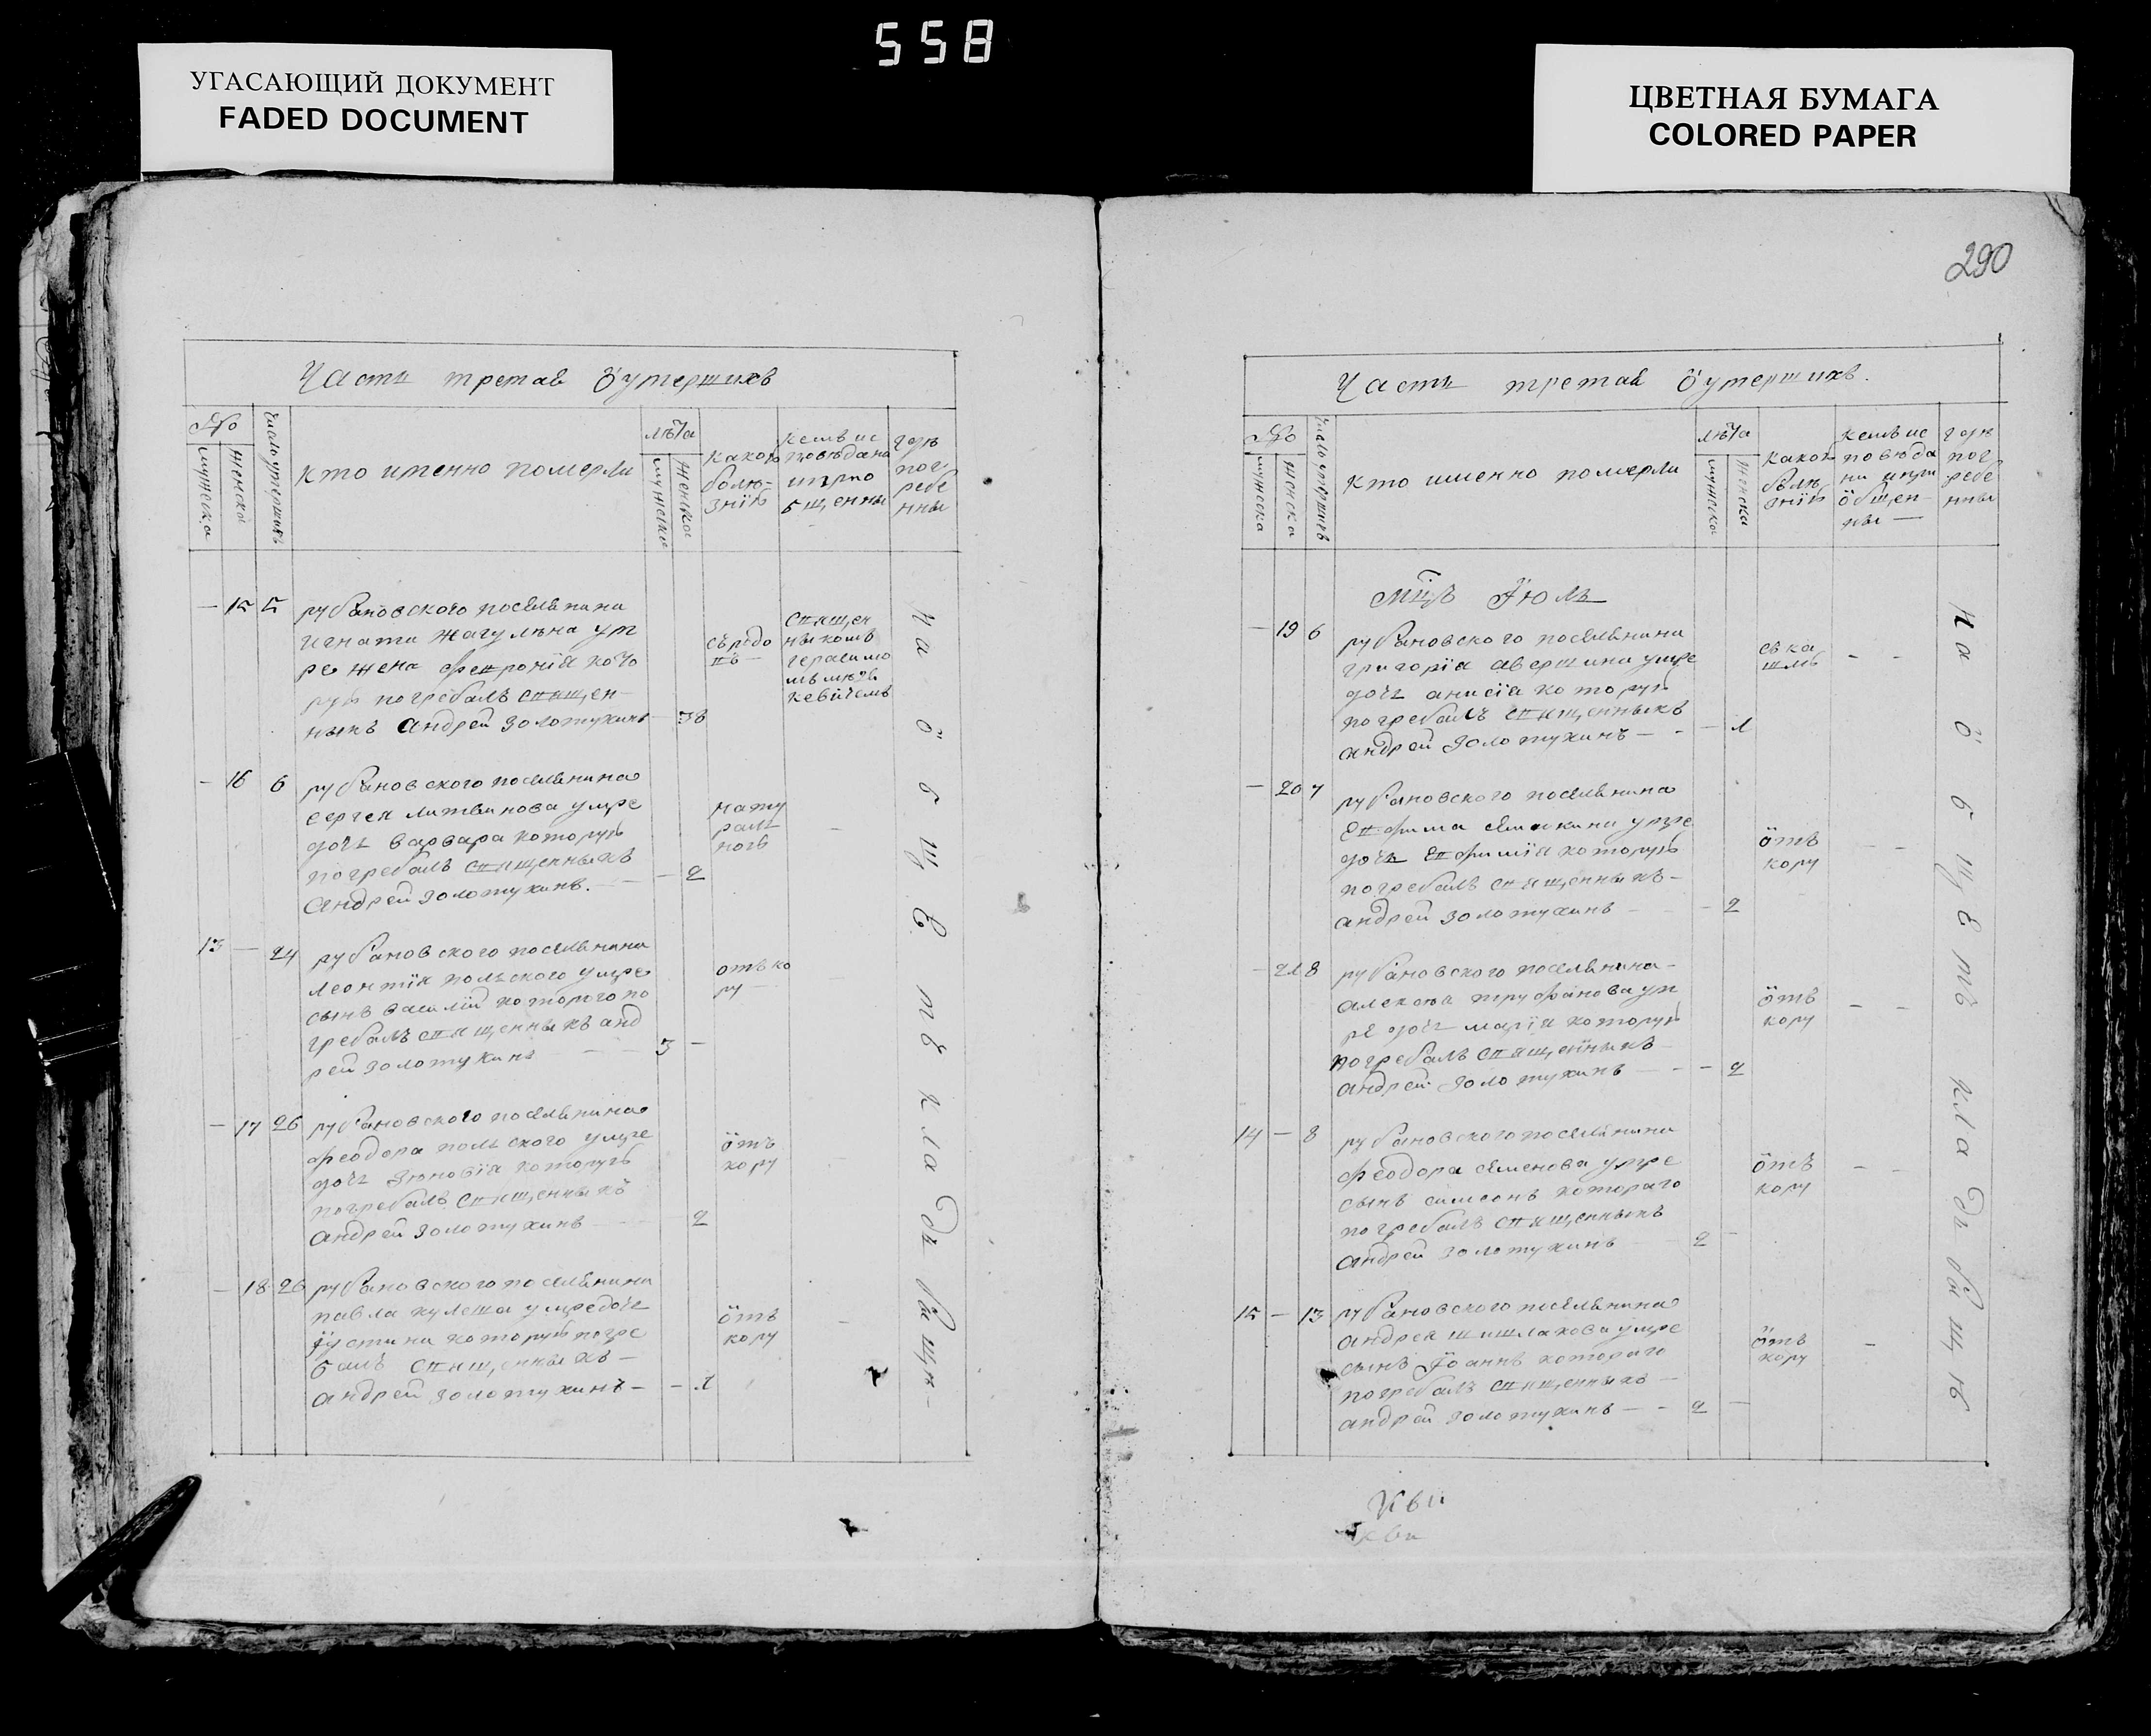 558
УГАСАЮЩИЙ ДОКУМЕНТ
FADED DOCUMENT
ЦВЕТНАЯ БУМАГА
COLORED PAPER
Часть третая о умершихъ
№
мужеска
женска
число умершихъ
кто именно померли
лѣта
мужеска
женска
какою
болѣ-
знію
кемъ ис
повѣдана
и прио
бщенны
гдѣ
пог
ребе
нны
15 5
рубановского поселянина
игната жагулына ум
ре жена феврониа кото
рую погребалъ священ-
никъ андрей золотухинъ 38
священ
никомъ
герасимо
мъ
16 6
рубановского поселянина
сергея литвинова умре
дочь варвара которую
погребалъ священникъ
андрей золотухинъ. 2
нату
раль
ною
13 24
рубановского поселянина
леонтія польского умре
сынъ василій которого по
гребалъ священникъ анд
рей золотухинъ 3
отъ ко
ру
17 26
рубановского поселянина
феодора польского умре
дочь зиновіа которую
погребалъ священникъ
андрей золотухинъ 2
отъ
кору
18 26
рубановского поселянина
павла кулеша умре дочь
іустина которую погре
балъ священникъ
андрей золотухинъ 1
отъ
кору
на общемъ кладбищѣ
290
Часть третая о умершихъ.
№
мужеска
женска
число умершихъ
кто именно померли
лѣта
мужеска
женска
какою
болѣ
знію
кемъ ис
повѣда
ни и при
общен-
ны
гдѣ
пог
ребе
нны
мцъ Іюль
19 6
рубановского поселянина
григоріа авершина умре
дочь анисіа которую
погребалъ священникъ
андрей золотухинъ 1
съ ка
шлю
20 7
рубановского поселянина
умре
дочь евфиміа которую
погребалъ священникъ
андрей золотухинъ 2
отъ
кору
21 8
рубановского поселянина
алексѣа труфанова ум
ре дочь маріа которую
погребалъ священникъ
андрей золотухинъ 2
отъ
кору
14 8
рубановского поселянина
феодора семенова умре
сынъ симеонъ котораго
погребалъ священникъ
андрей золотухинъ 2
отъ
кору
15 13
рубановского поселянина
андрея шишлакова умре
сынъ Іоаннъ котораго
погребалъ священникъ
андрей золотухинъ 2
отъ
кору
на общемъ кладбищѣ